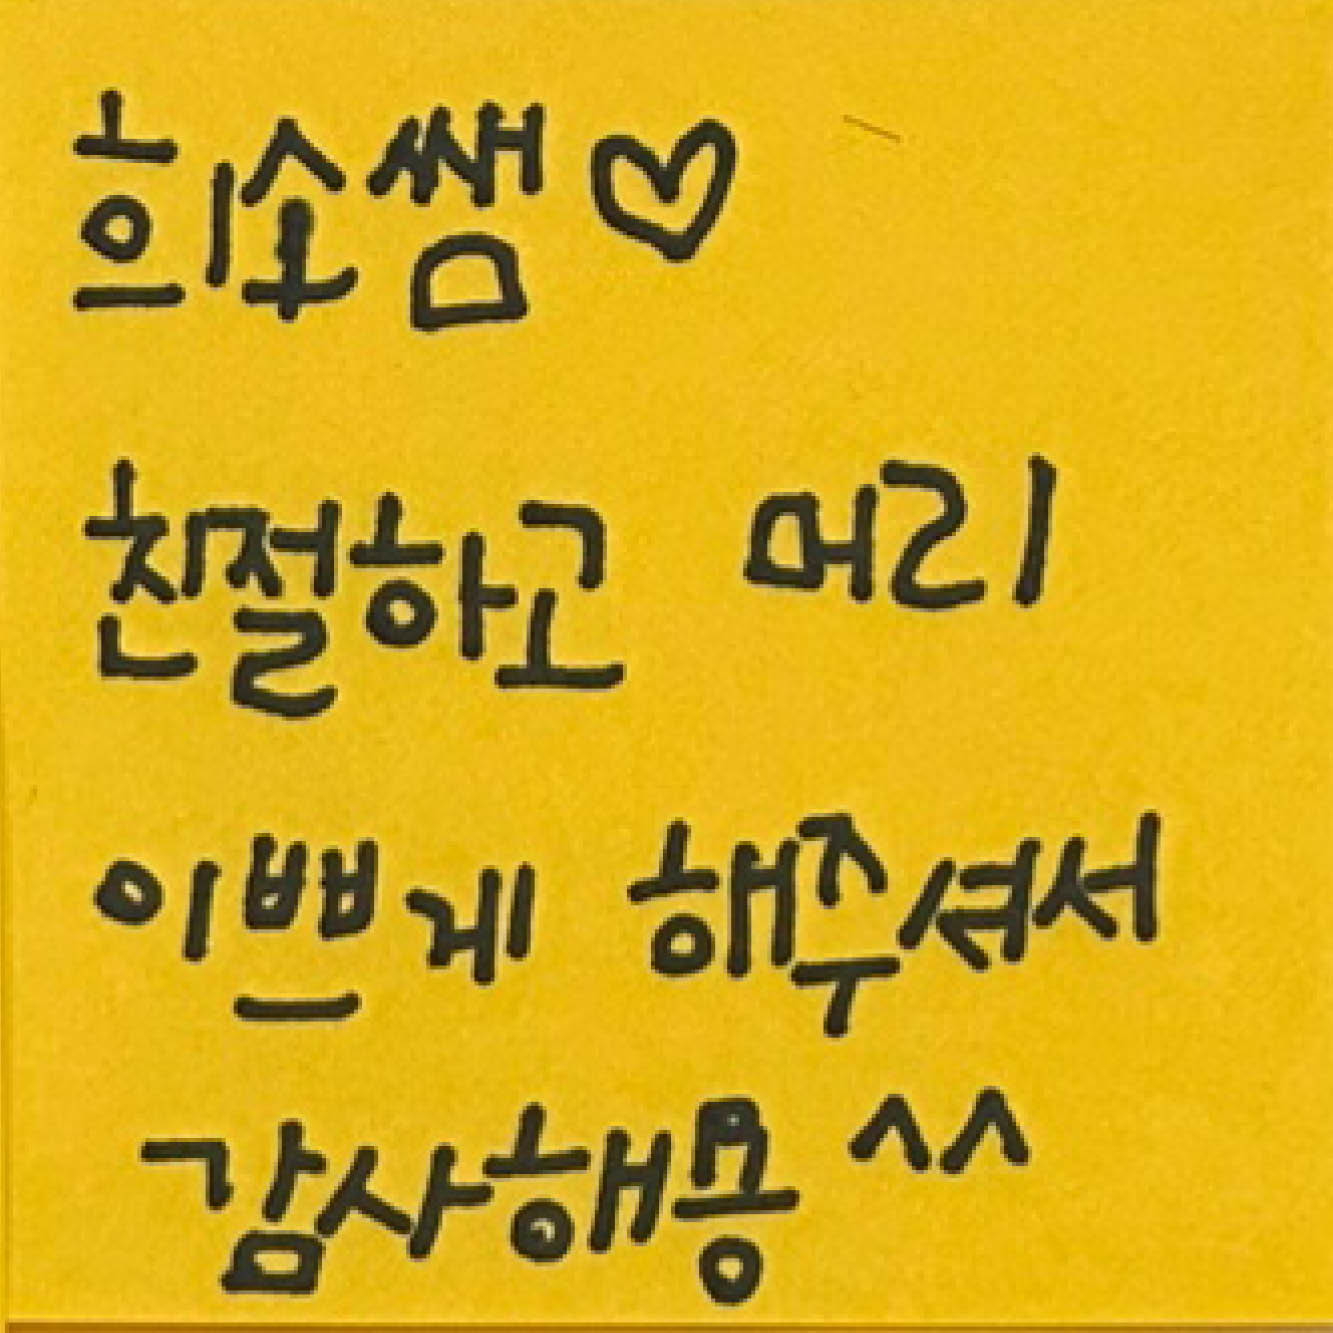 희소쌤♡
친절하고 머리
이쁘게 해주셔서
감사해용 ^^